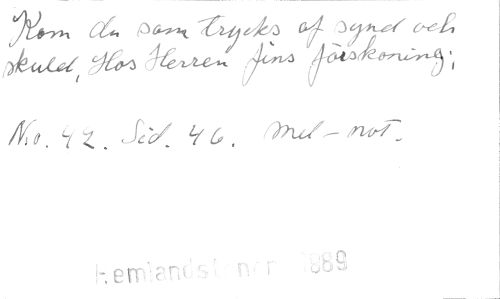 Kom du som trycks af synd och
skuld, Hos Herren fins förskoning;
No. 42. Sid. 46. Mel-not.
Hemlandstoner 1889